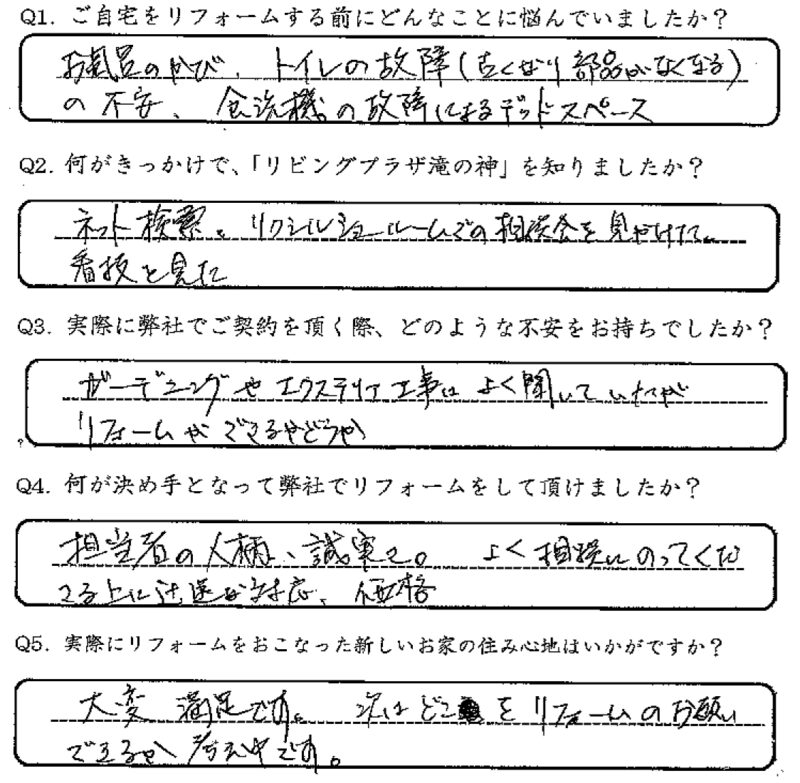 Q1. ご自宅をリフォームする前にどんなことに悩んでいましたか？
お風呂のかび、トイレの故障(古くなり部品がなくなる)
の不安、食洗機の故障によるデッドスペース
Q2. 何がきっかけで、「リビングプラザ滝の神」を知りましたか？
ネット検索。リクシルショールームでの相談会を見かけた。
看板を見た
Q3. 実際に弊社でご契約を頂く際、どのような不安をお持ちでしたか？
ガーデニングやエクステリア工事はよく聞いていたが
リフォームができるかどうか
Q4. 何が決め手となって弊社でリフォームをして頂けましたか？
担当者の人柄、誠実さ。よく相談にのってくだ
さる上に迅速な対応、価格
Q5. 実際にリフォームをおこなった新しいお家の住み心地はいかがですか？
大変満足です。次はどこをリフォームのお願い
できるか考え中です。